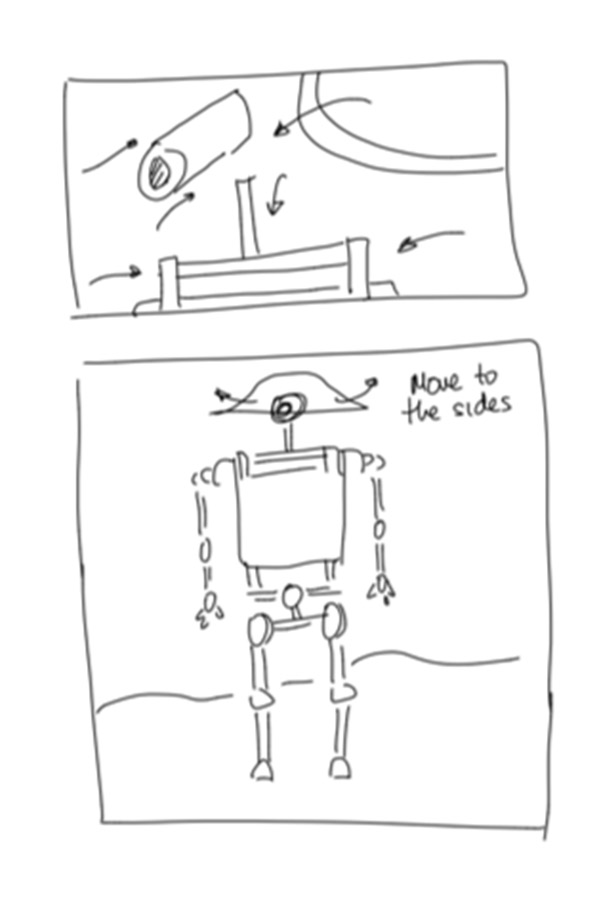 Move to
the sides